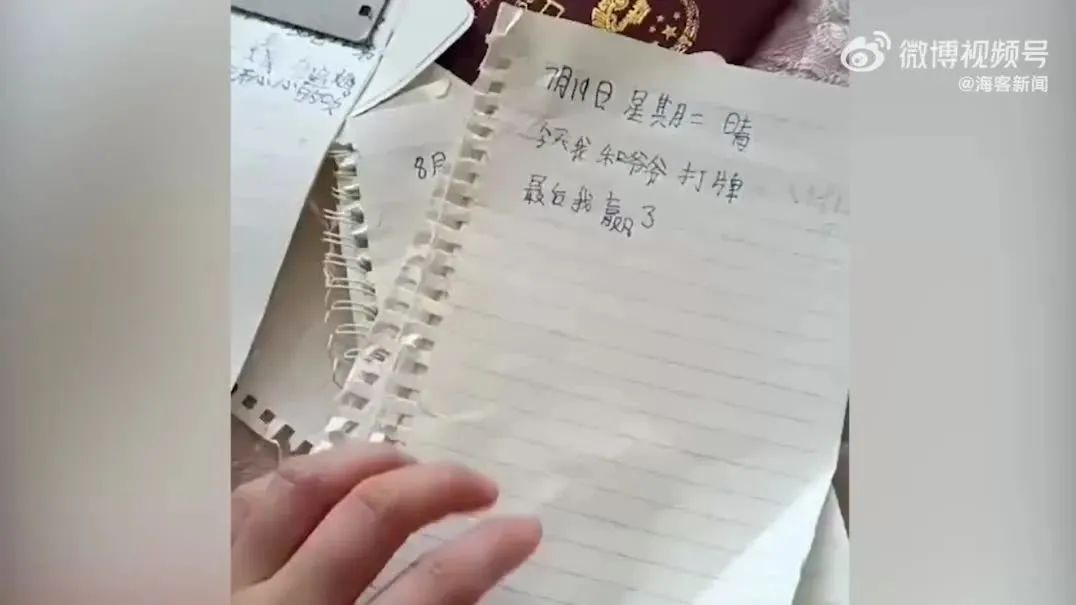 微博视频号
@海客新闻
7月19日 星期二 晴
今天我和爷爷打牌
最后我赢了
8月